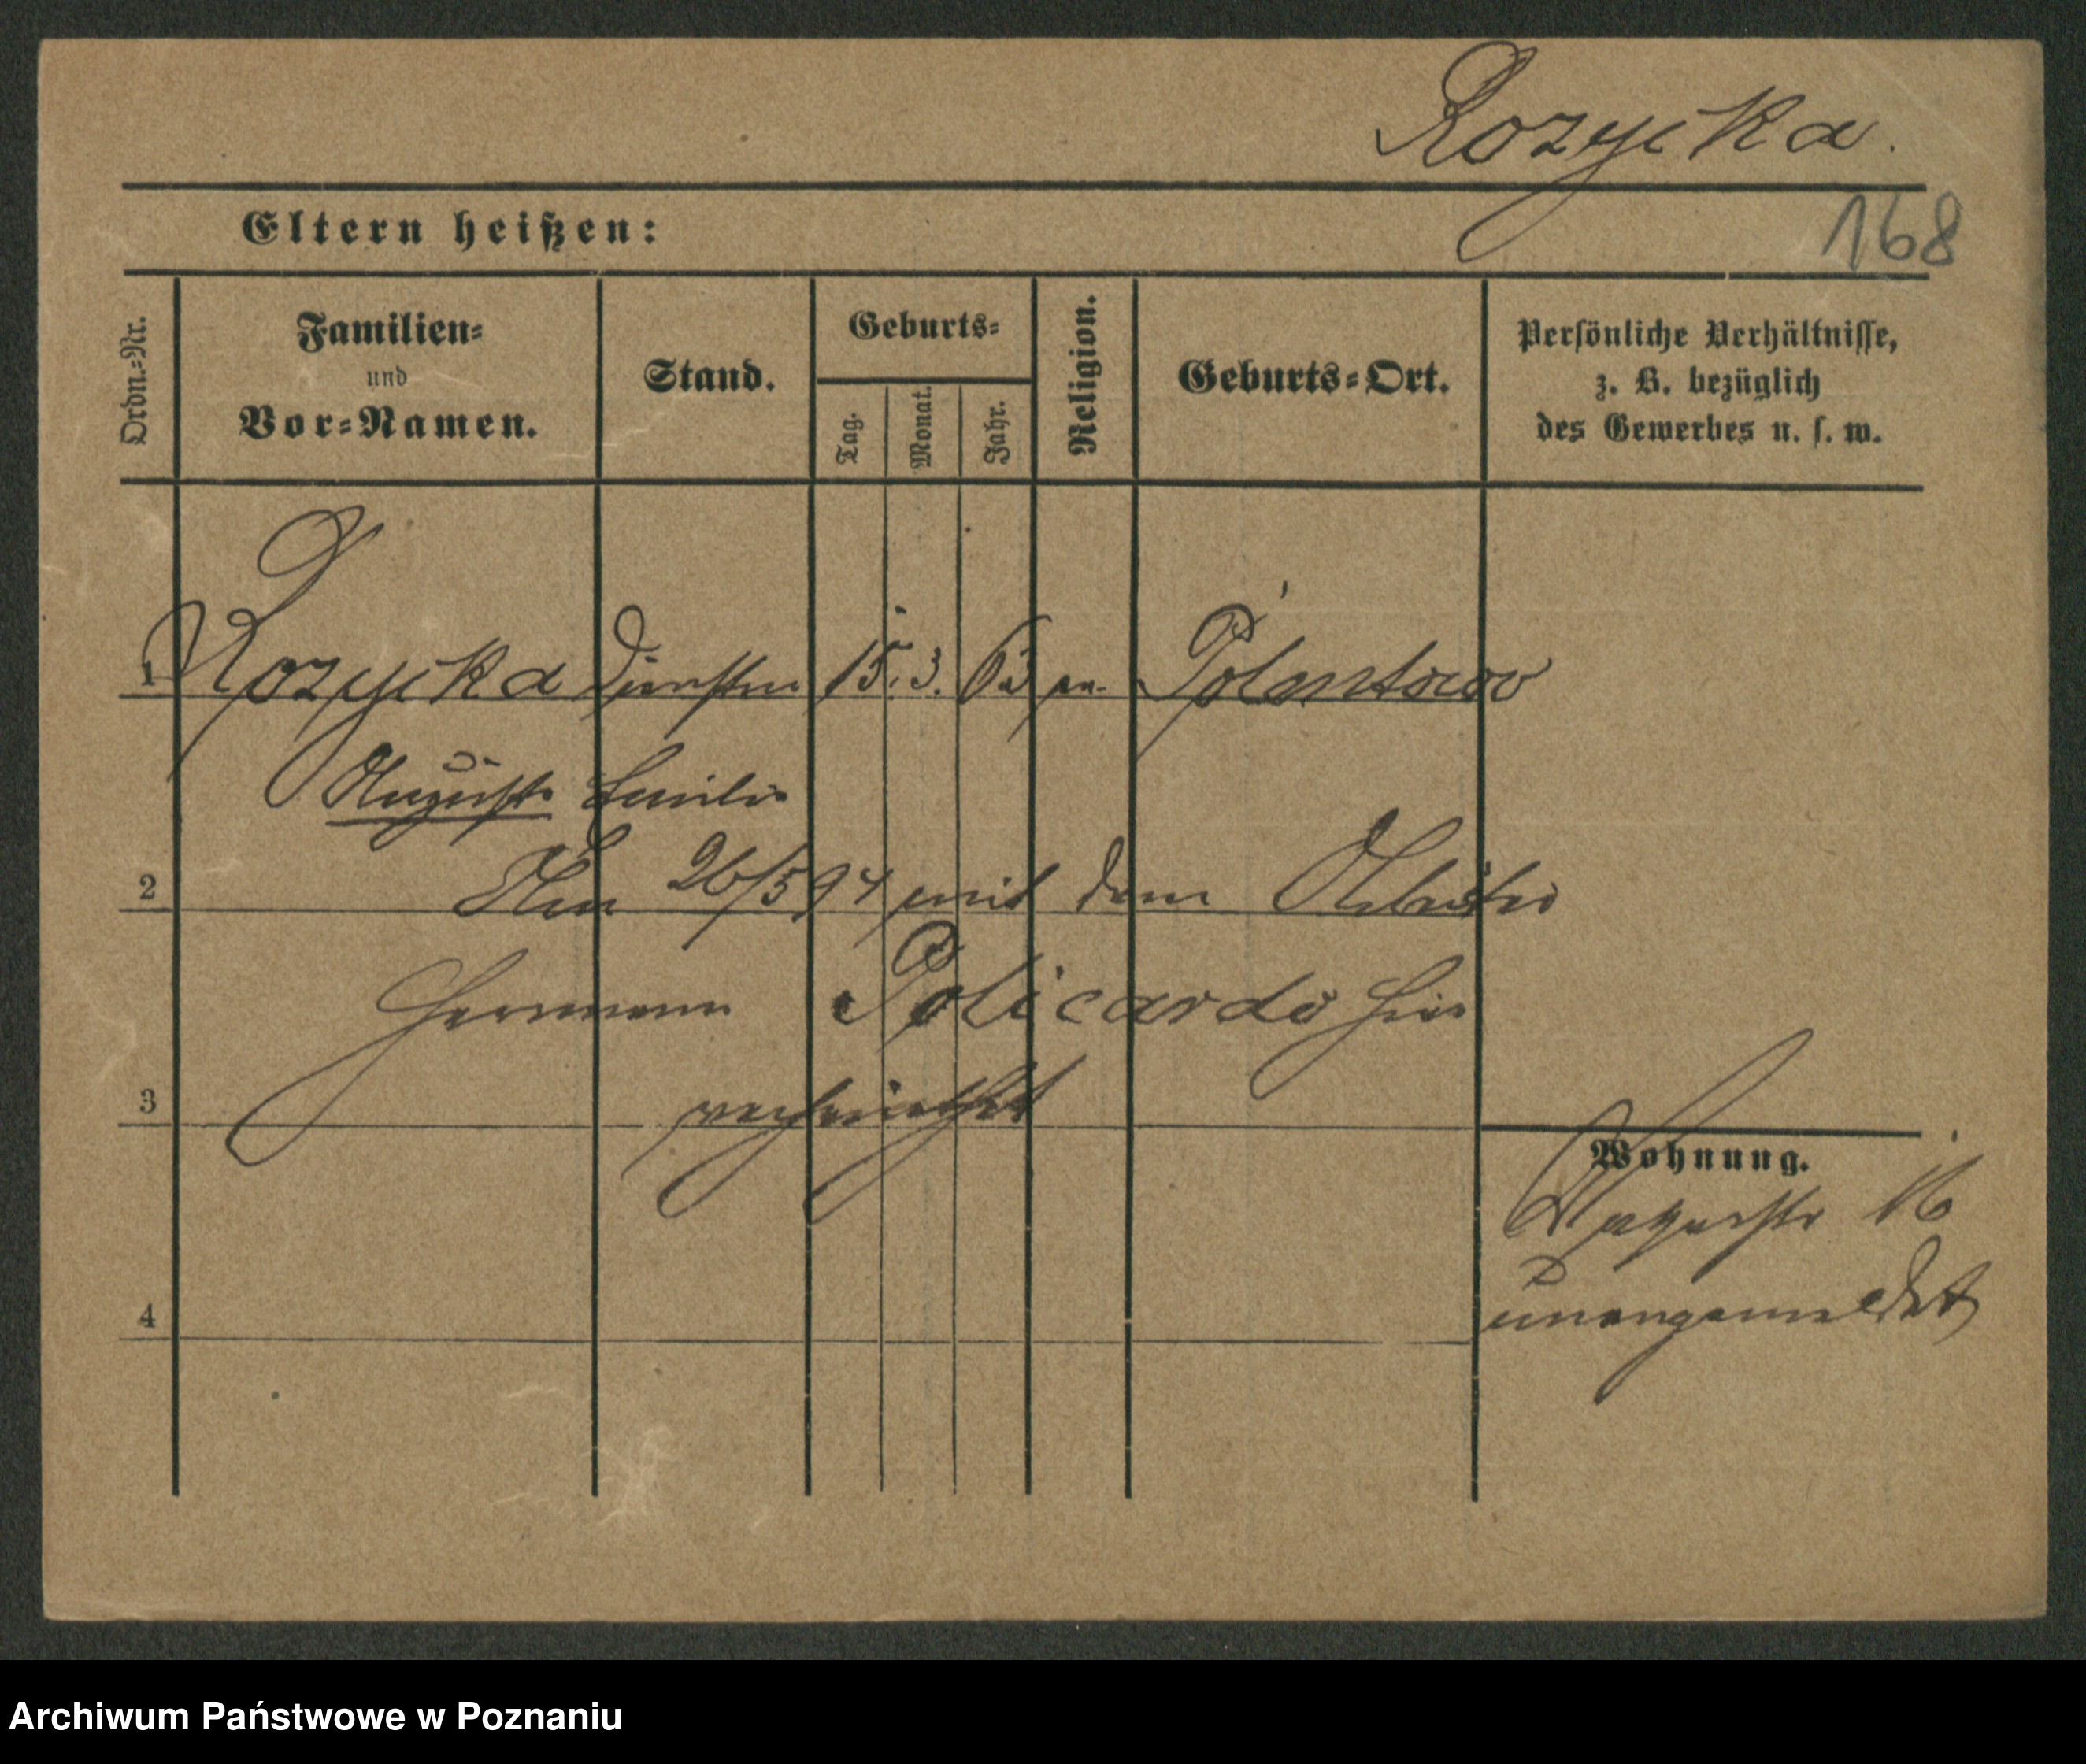 Rozycka.
168
Eltern heißen:
Ordn.-Nr.
Familien-
und
Vor-Namen.
Stand.
Geburts-
Tag.
Monat.
Jahr.
Religion.
Geburts-Ort.
Persönliche Verhältnisse,
z. B. bezüglich
des Gewerbes u. s. w.
1 Rozycka 15. 3. 63
Auguste Emilie
2 Am 26/5 94 mit dem Arbeiter
Hermann Policardo hier
3 verheirathet
Wohnung.
16
unangemeldet
4
Archiwum Państwowe w Poznaniu